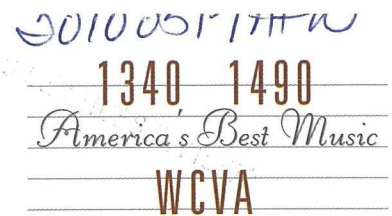 1340 1490
America's Best Music
WCVA